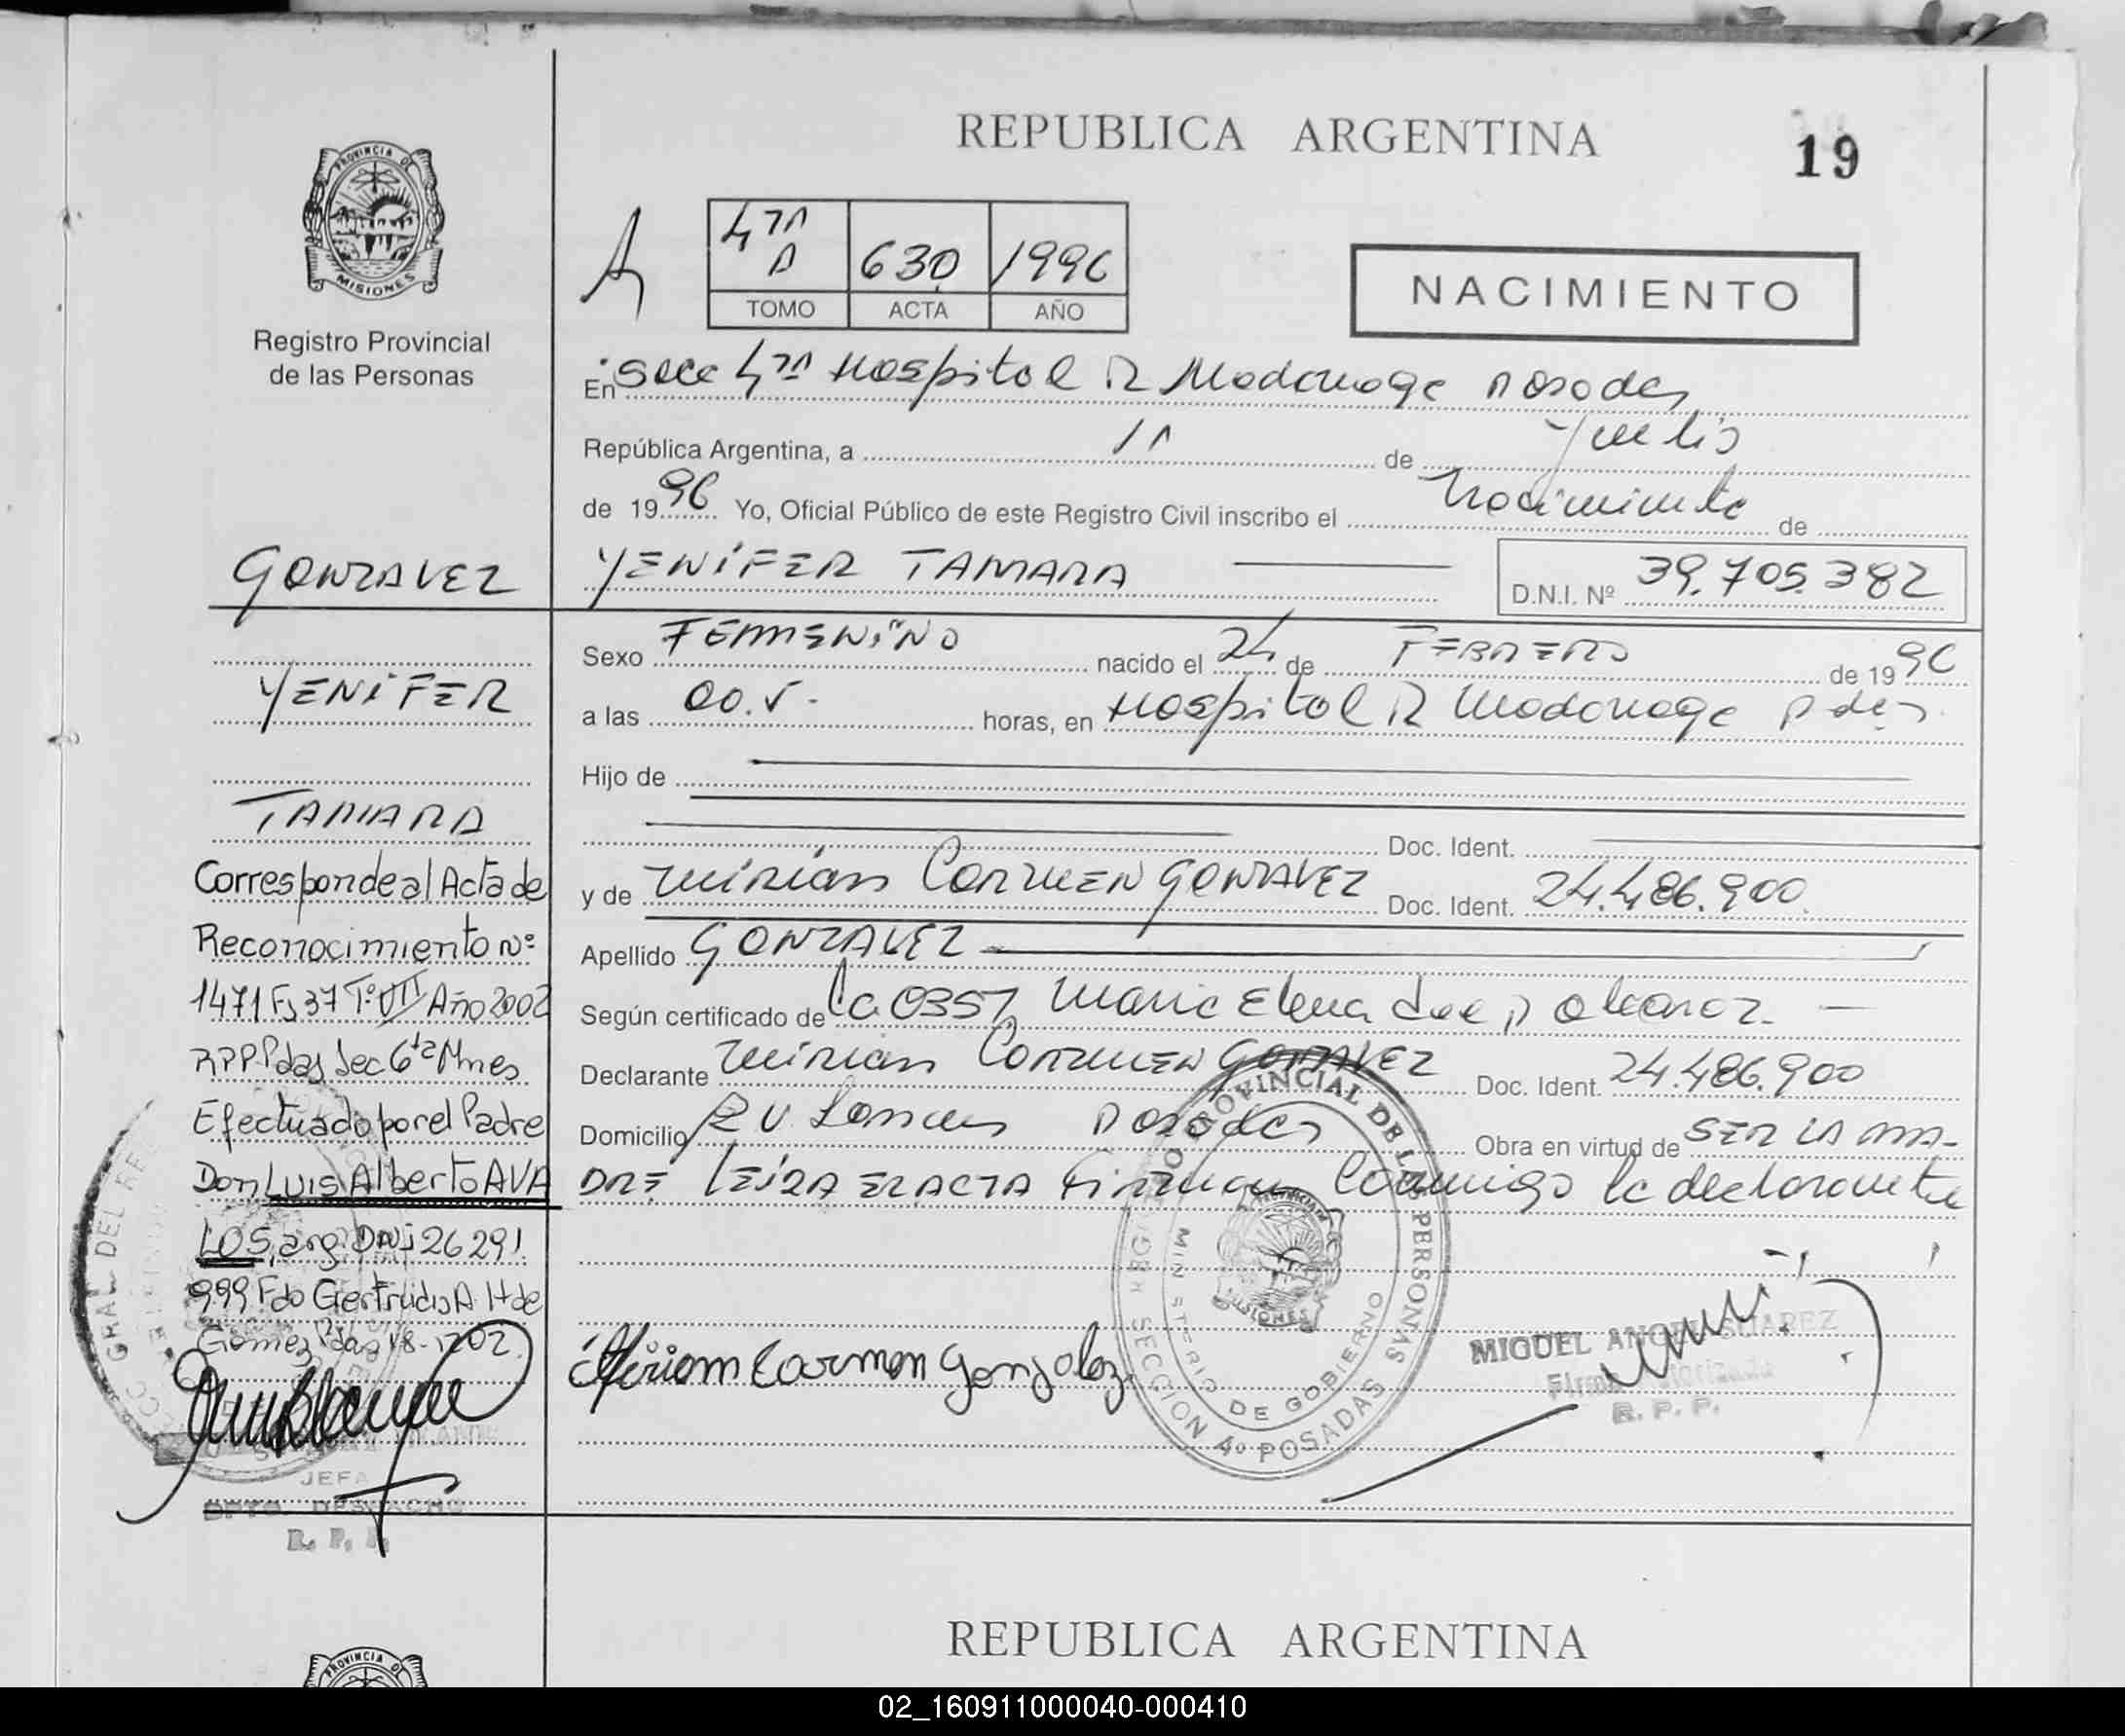 REPUBLICA ARGENTINA
19
PROVINCIA DE
MISIONES
Registro Provincial
de las Personas
A
4ta A 630 1996
TOMO ACTA AÑO
NACIMIENTO
En Secc 4ta Hospital R Madariaga Posadas
República Argentina, a 1º de Julio
de 1996 Yo, Oficial Público de este Registro Civil inscribo el Nacimiento de
YENIFER TAMARA
D.N.I. Nº 39.705.382
Sexo FEMENINO nacido el 24 de FEBRERO de 1996
a las 00.5 horas, en Hospital R Madariaga Pdas
Hijo de
Doc. Ident.
y de Mirian CARMEN GONZALEZ Doc. Ident. 24.486.900
Apellido GONZALEZ
Según certificado de la OBST Maria Elena de
Declarante Mirian CARMEN GONZALEZ Doc. Ident. 24.486.900
Domicilio Posadas Obra en virtud de SER LA MA-
DRE LEIDA EL ACTA Firman Conmigo la declarante
Miriam Carmen Gonzalez
MIGUEL ANGEL SUAREZ
Firma Autorizada
R. P. P.
REGISTRO PROVINCIAL DE LAS PERSONAS
MINISTERIO DE GOBIERNO
SECCION 4º POSADAS
MISIONES
GONZALEZ
YENIFER
TAMARA
Corresponde al Acta de
Reconocimiento Nº
1471 Fs 37 Tº VII Año 2002
RPP Pdas Sec 6ta Mnes
Efectuado por el Padre
Don Luis Alberto AVA
LOS, arg. DNI 26291.
999 Fdo Gertrudis A. H de
Gomez Pdas
JEFA
DPTO. DESPACHO
R. P. P.
REPUBLICA ARGENTINA
PROVINCIA DE
02_160911000040-000410